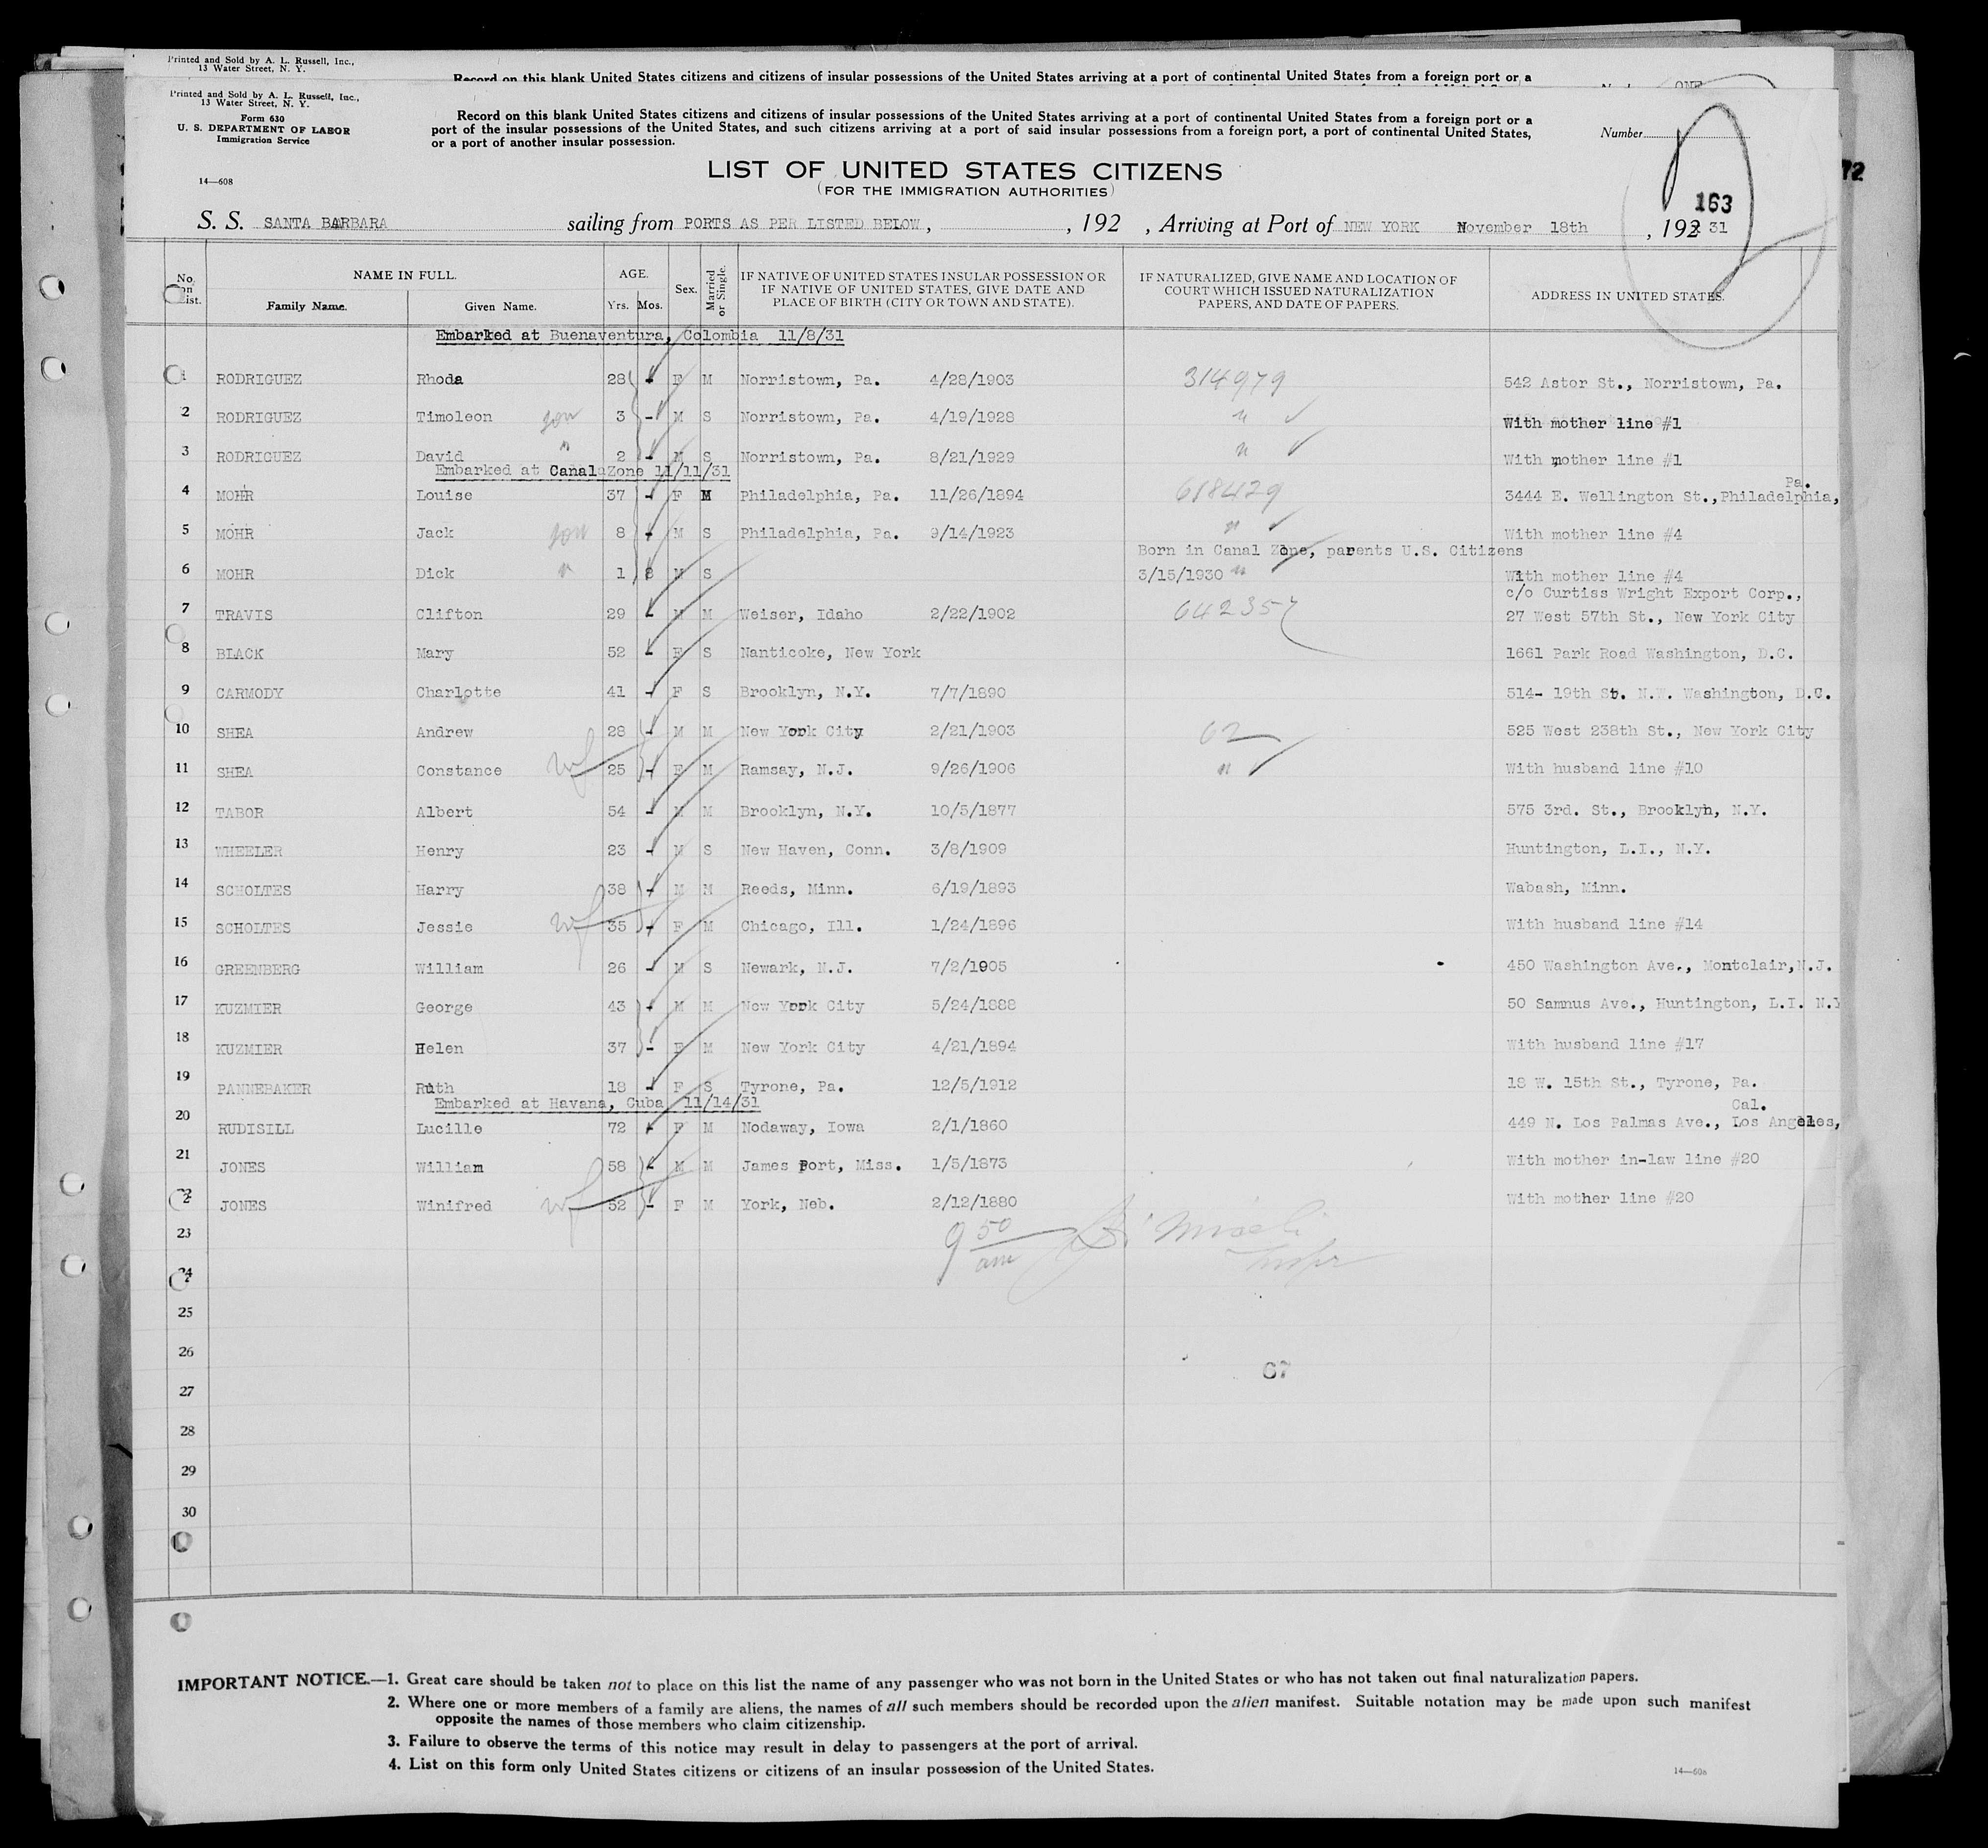 Printed and Sold by A. L. Russell, Inc.,
13 Water Street, N. Y.
Record on this blank United States citizens and citizens of insular possessions of the United States arriving at a port of continental United States from a foreign port or a
ONE
72
Printed and Sold by A. L. Russell, Inc.,
13 Water Street, N. Y.
Form 630
U. S. DEPARTMENT OF LABOR
Immigration Service
14—608
Record on this blank United States citizens and citizens of insular possessions of the United States arriving at a port of continental United States from a foreign port or a
port of the insular possessions of the United States, and such citizens arriving at a port of said insular possessions from a foreign port, a port of continental United States,
or a port of another insular possession.
Number
LIST OF UNITED STATES CITIZENS
(FOR THE IMMIGRATION AUTHORITIES)
163
S. S. SANTA BARBARA sailing from PORTS AS PER LISTED BELOW, , 192 , Arriving at Port of NEW YORK November 18th , 192 31
No. on List. NAME IN FULL. Family Name. Given Name. AGE. Yrs. Mos. Sex. Married or Single. IF NATIVE OF UNITED STATES INSULAR POSSESSION OR IF NATIVE OF UNITED STATES, GIVE DATE AND PLACE OF BIRTH (CITY OR TOWN AND STATE). IF NATURALIZED, GIVE NAME AND LOCATION OF COURT WHICH ISSUED NATURALIZATION PAPERS, AND DATE OF PAPERS. ADDRESS IN UNITED STATES.
Embarked at Buenaventura, Colombia 11/8/31
1 RODRIGUEZ Rhoda 28 - F M Norristown, Pa. 4/28/1903 314979 542 Astor St., Norristown, Pa.
2 RODRIGUEZ Timoleon son 3 - M S Norristown, Pa. 4/19/1928 " With mother line #1
3 RODRIGUEZ David " 2 - M S Norristown, Pa. 8/21/1929 " With mother line #1
Embarked at Canal Zone 11/11/31
4 MOHR Louise 37 - F M Philadelphia, Pa. 11/26/1894 618429 3444 E. Wellington St., Philadelphia, Pa.
5 MOHR Jack son 8 - M S Philadelphia, Pa. 9/14/1923 " With mother line #4
Born in Canal Zone, parents U.S. Citizens
6 MOHR Dick " 1 8 M S 3/15/1930 " With mother line #4
c/o Curtiss Wright Export Corp.,
7 TRAVIS Clifton 29 - M M Weiser, Idaho 2/22/1902 642357 27 West 57th St., New York City
8 BLACK Mary 52 - F S Nanticoke, New York 1661 Park Road Washington, D.C.
9 CARMODY Charlotte 41 - F S Brooklyn, N.Y. 7/7/1890 514- 19th St. N.W. Washington, D.C.
10 SHEA Andrew 28 - M M New York City 2/21/1903 62 525 West 238th St., New York City
11 SHEA Constance wf 25 - F M Ramsay, N.J. 9/26/1906 " With husband line #10
12 TABOR Albert 54 - M M Brooklyn, N.Y. 10/5/1877 575 3rd. St., Brooklyn, N.Y.
13 WHEELER Henry 23 - M S New Haven, Conn. 3/8/1909 Huntington, L.I., N.Y.
14 SCHOLTES Harry 38 - M M Reeds, Minn. 6/19/1893 Wabash, Minn.
15 SCHOLTES Jessie wf 35 - F M Chicago, Ill. 1/24/1896 With husband line #14
16 GREENBERG William 26 - M S Newark, N.J. 7/2/1905 450 Washington Ave., Montclair, N.J.
17 KUZMIER George 43 - M M New York City 5/24/1888 50 Samnus Ave., Huntington, L.I. N.Y
18 KUZMIER Helen 37 - F M New York City 4/21/1894 With husband line #17
19 PANNEBAKER Ruth 18 - F S Tyrone, Pa. 12/5/1912 18 W. 15th St., Tyrone, Pa.
Embarked at Havana, Cuba 11/14/31
20 RUDISILL Lucille 72 - F M Nodaway, Iowa 2/1/1860 449 N. Los Palmas Ave., Los Angeles, Cal.
21 JONES William 58 - M M James Port, Miss. 1/5/1873 With mother in-law line #20
22 JONES Winifred wf 52 - F M York, Neb. 2/12/1880 With mother line #20
23
9 50 am
Inspr
24
25
26
67
27
28
29
30
IMPORTANT NOTICE.—1. Great care should be taken not to place on this list the name of any passenger who was not born in the United States or who has not taken out final naturalization papers.
2. Where one or more members of a family are aliens, the names of all such members should be recorded upon the alien manifest. Suitable notation may be made upon such manifest
opposite the names of those members who claim citizenship.
3. Failure to observe the terms of this notice may result in delay to passengers at the port of arrival.
4. List on this form only United States citizens or citizens of an insular possession of the United States.
14—608